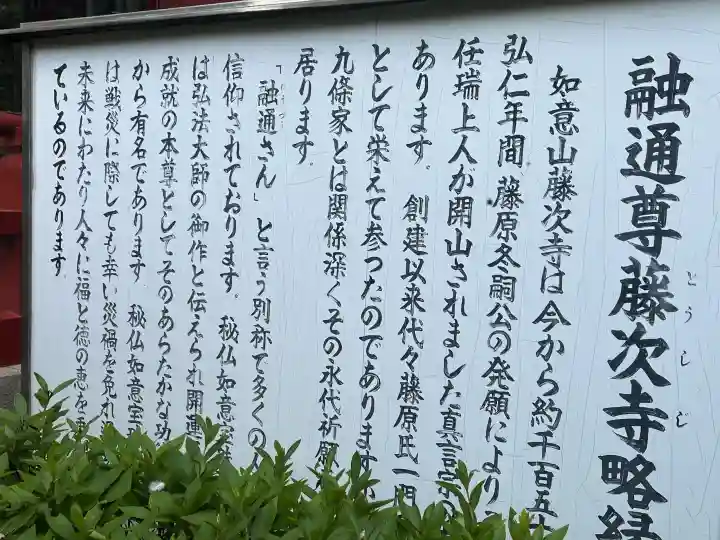 融通尊藤次寺略縁
とうしじ
如意山藤次寺は今から約千百五十
弘仁年間藤原冬嗣公の発願により
任瑞上人が開山されました真言宗の
あります。創建以来代々藤原氏一門
として栄えて参ったのであります
九條家とは関係深くその永代祈願
居ります。
「融通さん」と言う別称で多くの
ゆうづう
信仰されております。秘仏如意宝珠
は弘法大師の御作と伝えられ開運
成就の本尊としてそのあらたかな功
から有名であります 秘仏如意宝
は戦災に際しても幸い災禍を免れ
未来にわたり人々に福と徳の恵を
ているのであります。